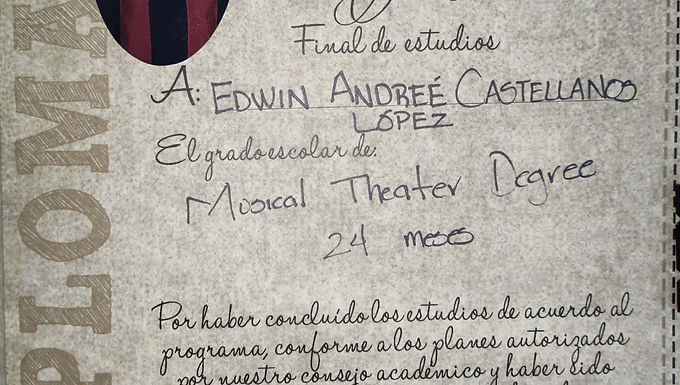 DIPLOMA
Final de estudios
A: EDWIN ANDREÉ CASTELLANOS
LÓPEZ
El grado escolar de:
Musical Theater Degree
24 meses
Por haber concluído los estudios de acuerdo al
programa, conforme a los planes autorizados
por nuestro consejo académico y haber sido